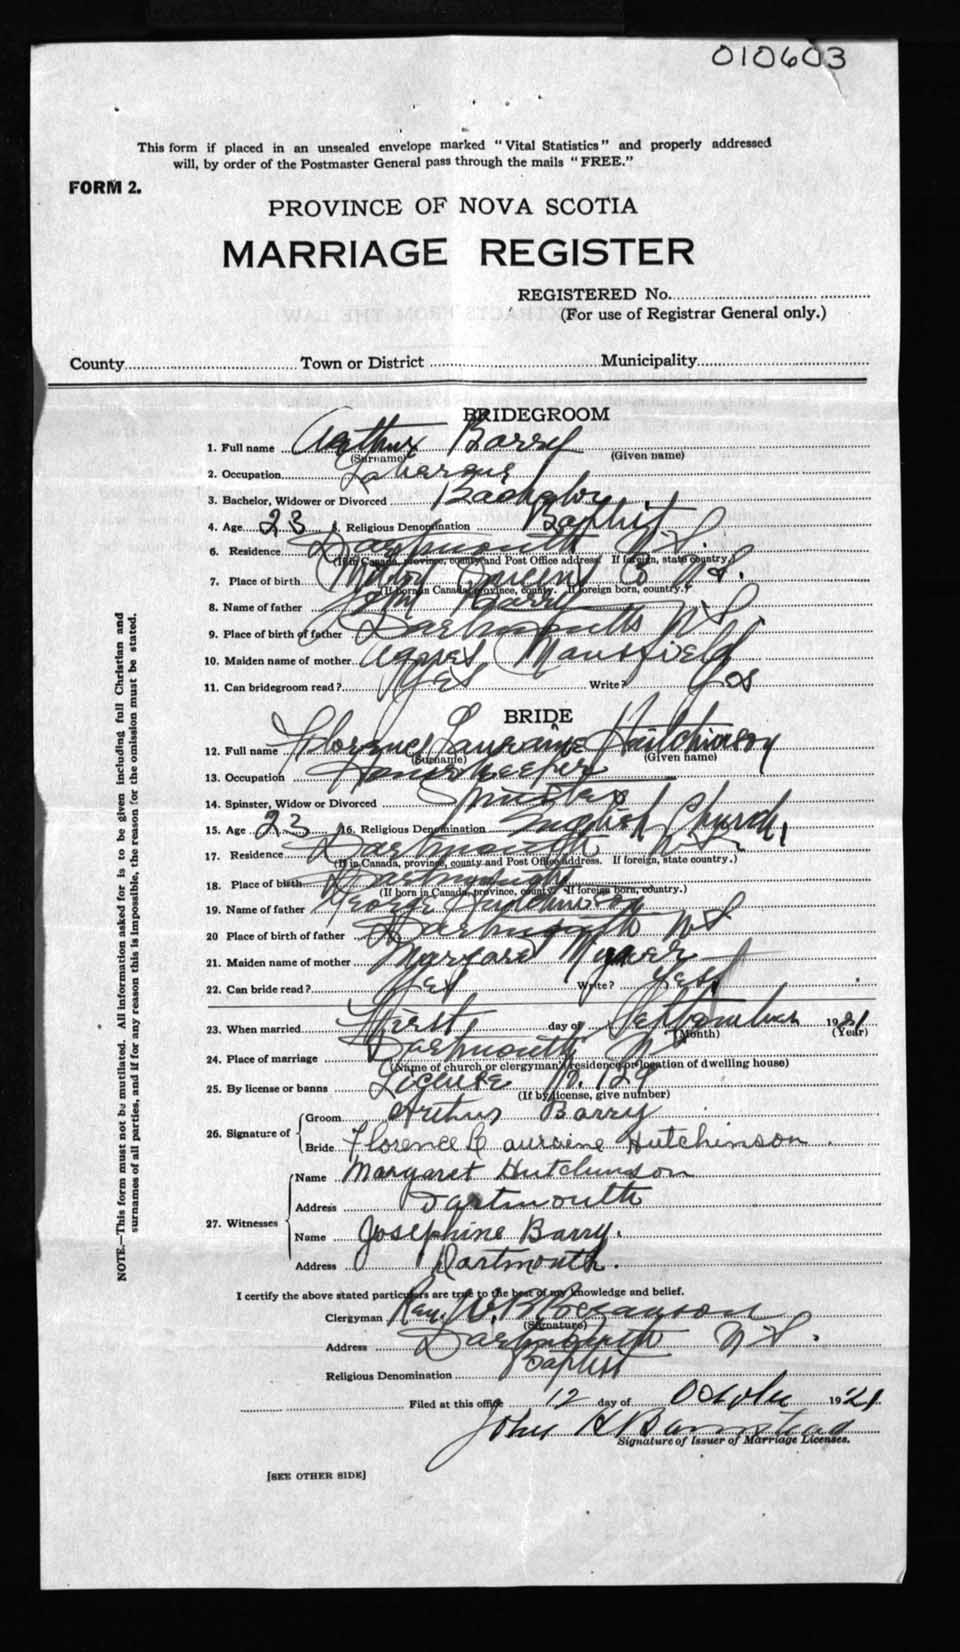 010603
This form if placed in an unsealed envelope marked "Vital Statistics" and properly addressed
will, by order of the Postmaster General pass through the mails "FREE."
FORM 2.
PROVINCE OF NOVA SCOTIA
MARRIAGE REGISTER
REGISTERED No.
(For use of Registrar General only.)
County Town or District Municipality
BRIDEGROOM
1. Full name Arthur Barry
(Surname) (Given name)
2. Occupation
3. Bachelor, Widower or Divorced Bachelor
4. Age 23 Religious Denomination Baptist
6. Residence Dartmouth N.S.
(If in Canada, province, county and Post Office address. If foreign, state country.)
7. Place of birth Co N.S.
(If born in Canada, province, county. If foreign born, country.)
8. Name of father John Barry
9. Place of birth of father Dartmouth N S
10. Maiden name of mother Agnes Mansfield
11. Can bridegroom read? Yes Write? Yes
BRIDE
12. Full name Florence Lauraine Hutchinson
(Surname) (Given name)
13. Occupation Housekeeper
14. Spinster, Widow or Divorced Spinster
15. Age 23 16. Religious Denomination English Church
17. Residence Dartmouth N S
(If in Canada, province, county and Post Office address. If foreign, state country.)
18. Place of birth Dartmouth
(If born in Canada, province, county. If foreign born, country.)
19. Name of father George Hutchinson
20 Place of birth of father Dartmouth N S
21. Maiden name of mother Margaret
22. Can bride read? Yes Write? Yes
23. When married First day of September 1921
(Month) (Year)
24. Place of marriage Dartmouth N S
(Name of church or clergyman's residence or location of dwelling house)
25. By license or banns License No. 129
(If by license, give number)
26. Signature of Groom Arthur Barry
Bride Florence Lauraine Hutchinson
27. Witnesses Name Margaret Hutchinson
Address Dartmouth
Name Josephine Barry.
Address Dartmouth.
I certify the above stated particulars are true to the best of my knowledge and belief.
Clergyman Rev. W. B. Bezanson
(Signature)
Address Dartmouth N S.
Religious Denomination Baptist
Filed at this office 12 day of October 1921
John H Barnstead
Signature of Issuer of Marriage Licenses.
[SEE OTHER SIDE]
NOTE.—This form must not be mutilated. All information asked for is to be given including full Christian and
surnames of all parties, and if for any reason this is impossible, the reason for the omission must be stated.